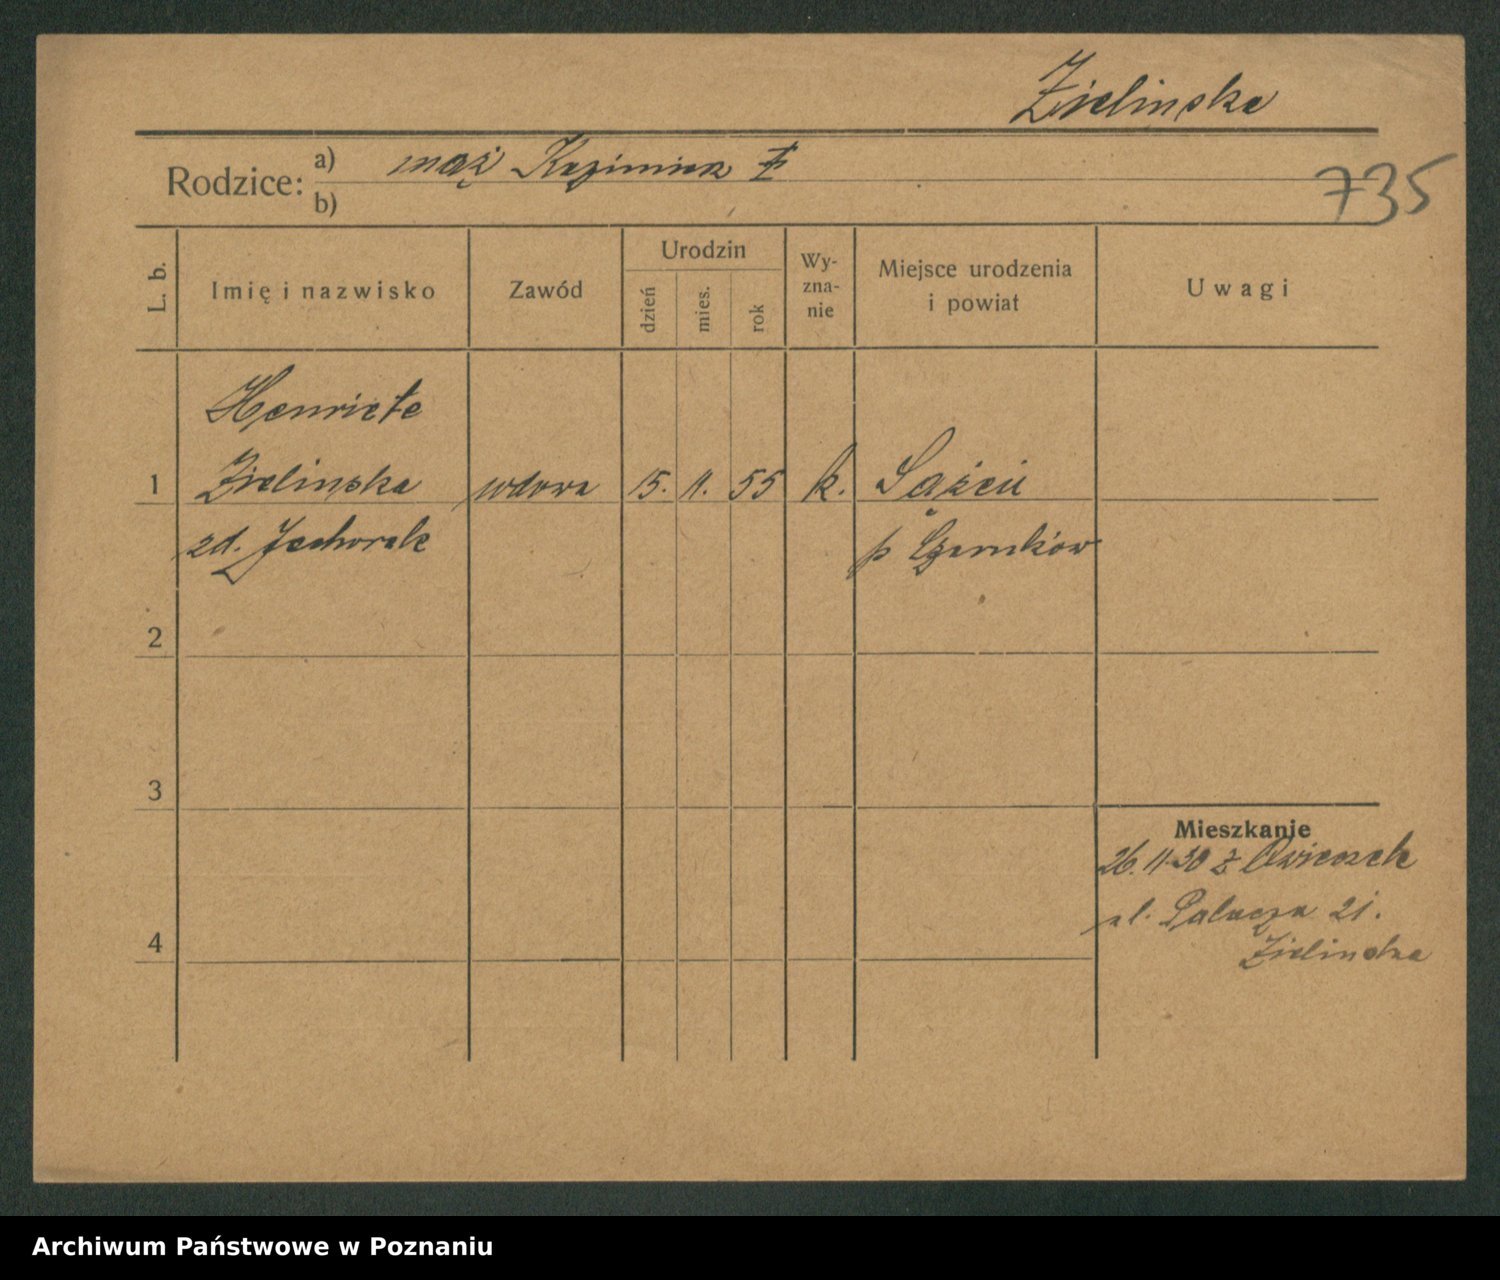 Zielinska
Rodzice: a) mąż Kazimierz Z
b)
735
L. b. Imię i nazwisko Zawód Urodzin dzień mies. rok Wy-zna-nie Miejsce urodzenia i powiat Uwagi
Henriete
1 Zielinska wdowa 15. 11. 55 k.
zd. p Czarnków
2
3
Mieszkanie
26. 11. 30 z
ul. Palacza 21.
4
Zielinska
Archiwum Państwowe w Poznaniu